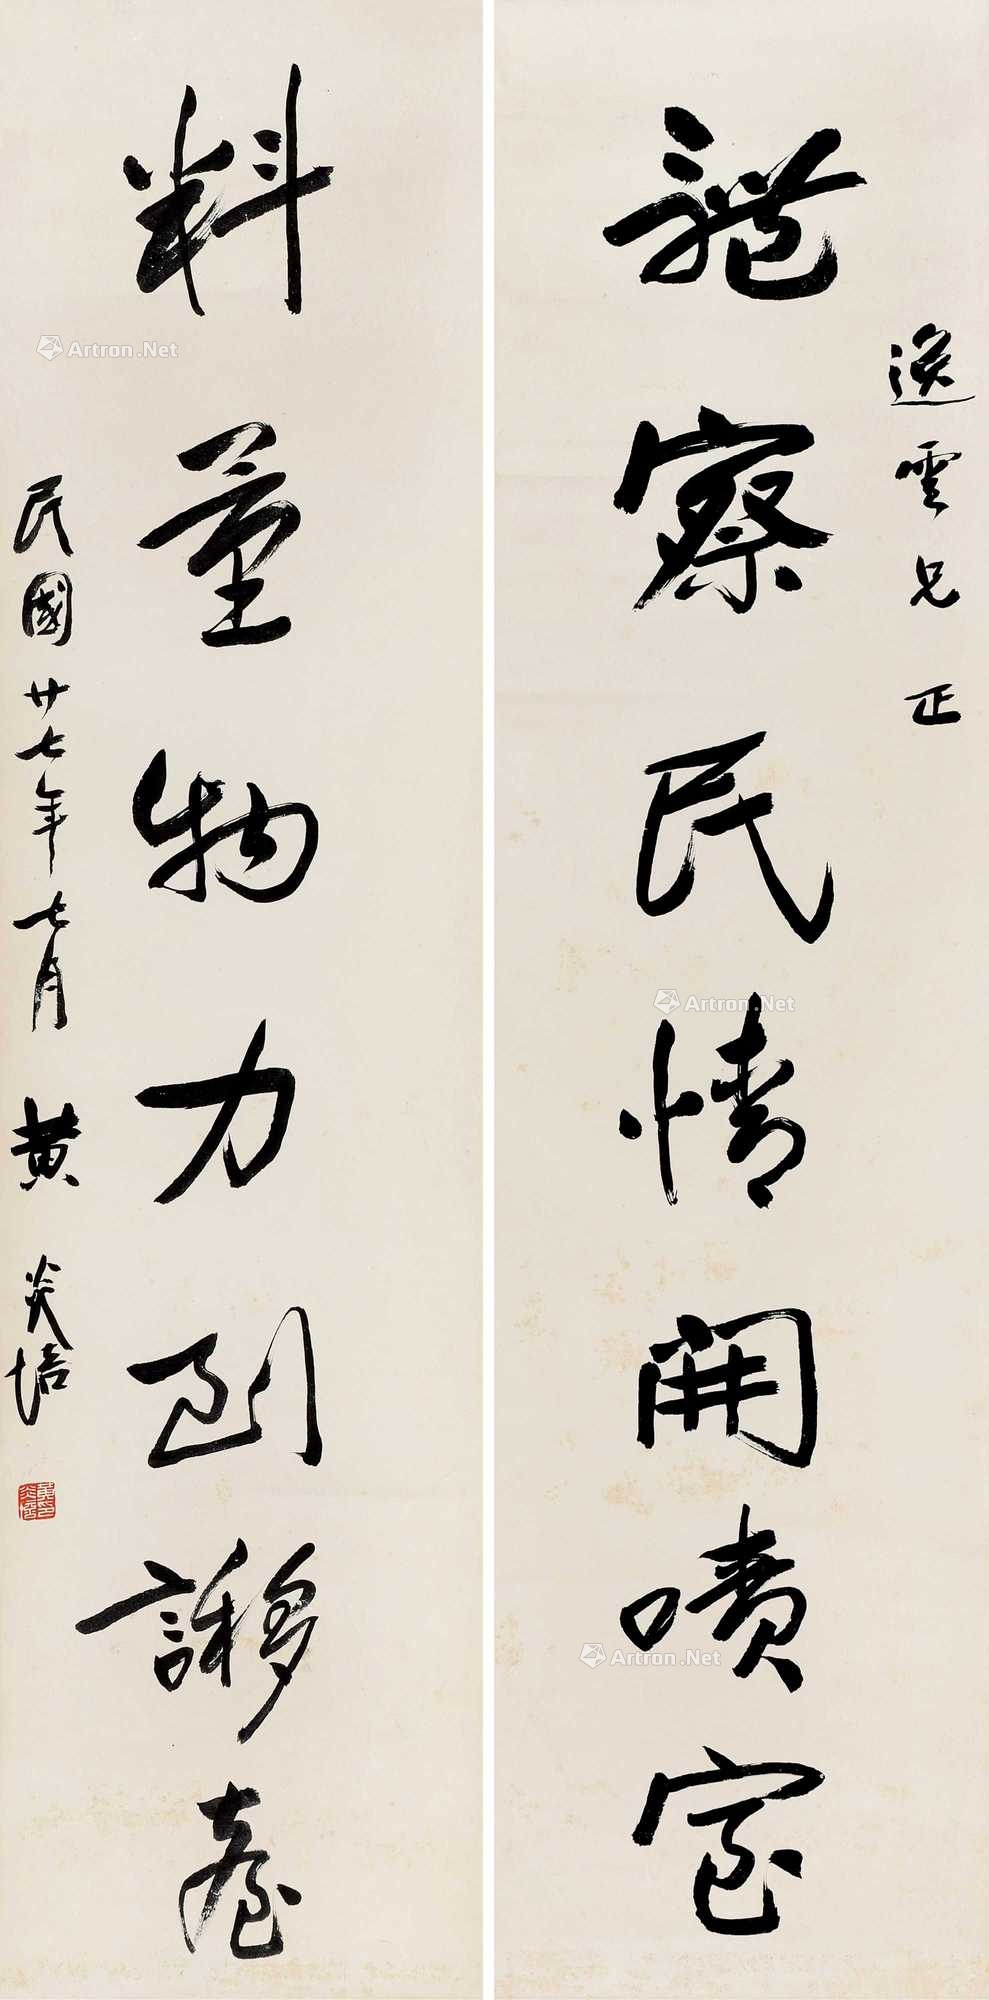 逸雲兄正
體察民情開嘖室
料量物力到謻臺
民國廿七年七月 黃炎培
Artron.Net
Artron.Net
Artron.Net